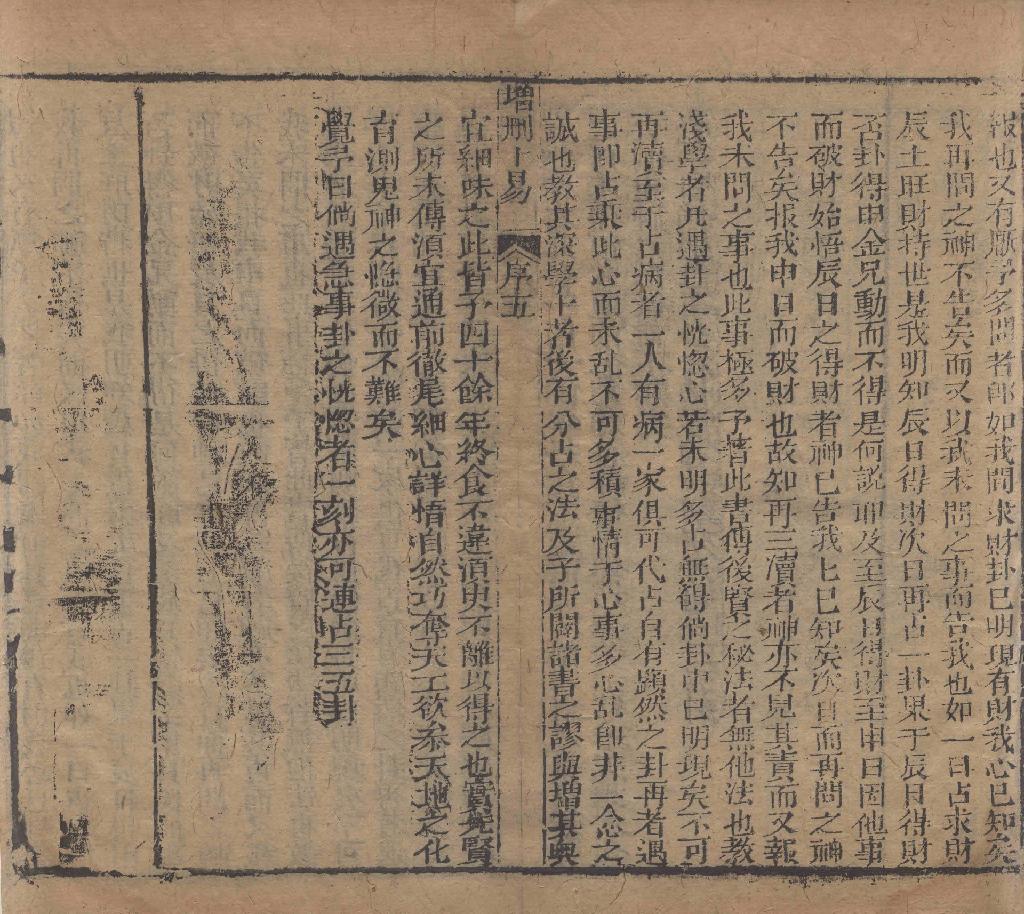 報也又有厭予多問者即如我問求財卦已明現有財我心已知矣
我再問之神不告矣而又以我未問之事而告我也如一日占求財
辰土旺財持世是我明知辰日得財次日再占一卦果于辰日得財
否卦得申金兄動而不得是何説耶及至辰日得財至申日因他事
而破財始悟辰日之得財者神已告我上巳知矣次日而再問之神
不告矣报我申日而破財也故知再三瀆者神亦不見其責而又報
我未問之事也此事極多予著此書傳後賢之秘法者無他法也教
淺學者凡遇卦之恍惚心若未明多占無碍倘卦中已明現矣不可
再瀆至于占病者一人有病一家俱可代占自有顕然之卦再者遇
事即占乘此心而未乱不可多積事情于心事多心乱即非一念之
誠也教其深學十者後有分占之法及予所闢諸書之謬與增其奥
增刪卜易 序 五
宜細味之此皆予四十餘年終食不違湏臾不離以得之也實先賢
之所未傳湏宜通前徹尾細心詳情自然巧奪天工欲叅天地之化
育測鬼神之隐微而不難矣
覺子曰倘遇急事卦之恍惚者一刻亦可連占三五卦